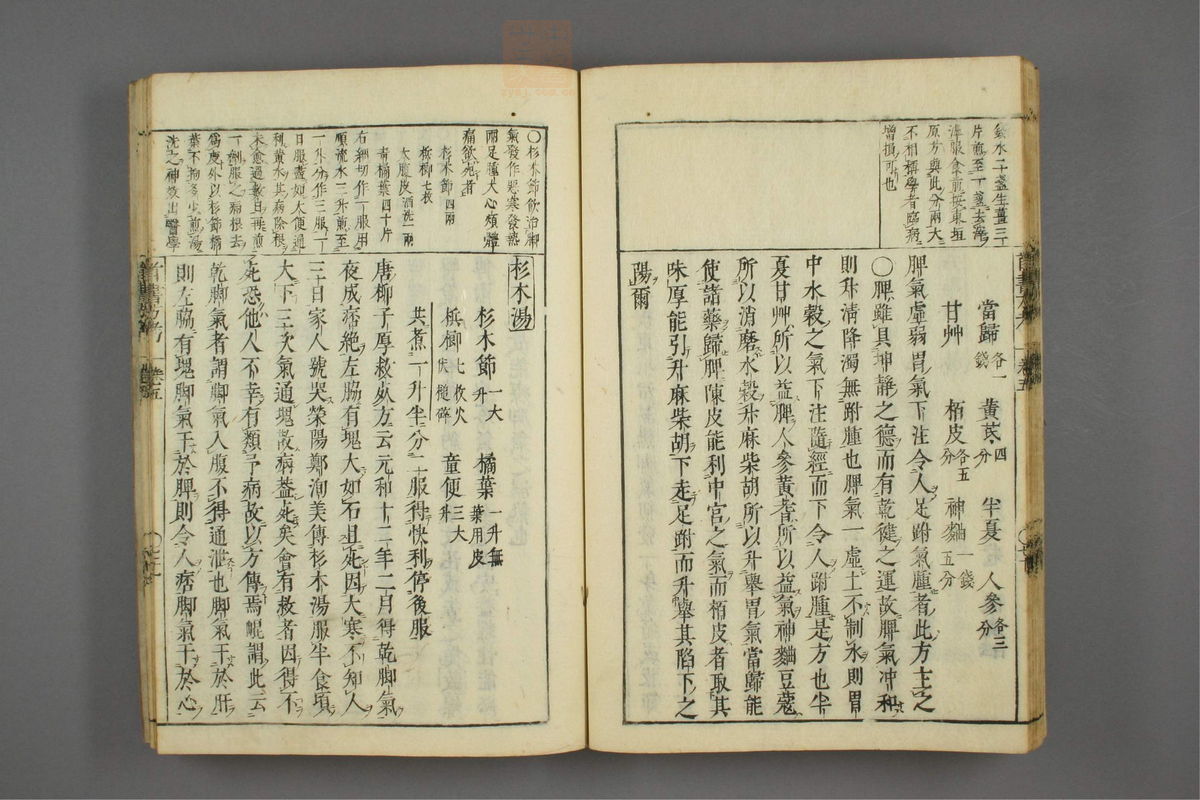 鉸水二十盞生薑三
片煎至一盞去滓
淬服食前按東垣
原方與此分兩大
不相稱學者臨病
增損可也
當歸各一錢 黃芪四分 半夏 人參各三分
甘艸 栢皮各五分 神麯一錢五分
脾氣虛弱胃氣下注令人足跗氣腫者此方主之
〇脾雖具坤靜之德而有乾健之運故脾氣冲和
則升淸降濁無跗腫也脾氣一虛土不制水則胃
中水穀之氣下注隨經而下令人跗腫是方也半
夏甘艸所以益脾人參黃耆所以益氣神麯豆蔻
所以消磨水穀升麻柴胡所以升舉胃氣當歸能
使諸藥歸脾陳皮能利中宮之氣而栢皮者取其
味厚能引升麻柴胡下走足跗而升舉其陷下之
陽爾
〇杉木節飲治脚
氣發作惡寒發熱
兩足腫大心煩體
痛欲死者
杉木節四兩
檳榔七枚
大腹皮酒洗一兩
青橘葉四十片
右細切作一服用
順流水三升煎至
一升分作三服一
日服盡如大便通
利黃水其病除根
未愈過數日再煎
一劑服之病根去
爲度外以杉節橘
葉不拘多少煎湯
洗之神效出醫學
杉木湯
杉木節一大升 橘葉一升無葉用皮
檳榔七枚火伏槌碎 童便三大升
共煮一升半分二服得快利停後服
唐柳子厚救死方云元和十二年二月得乾脚氣
夜成痞絶左脇有塊大如石且死因大寒不知人
三日家人號哭滎陽鄭洵美傳杉木湯服半食頃
大下三次氣通塊散病蓋死矣會有救者因得不
死恐他人不幸有類予病故以方傳焉崐謂此云
乾脚氣者謂脚氣入腹不得通泄也脚氣干於肝
則左脇有塊脚氣干於脾則令人痞脚氣干於心